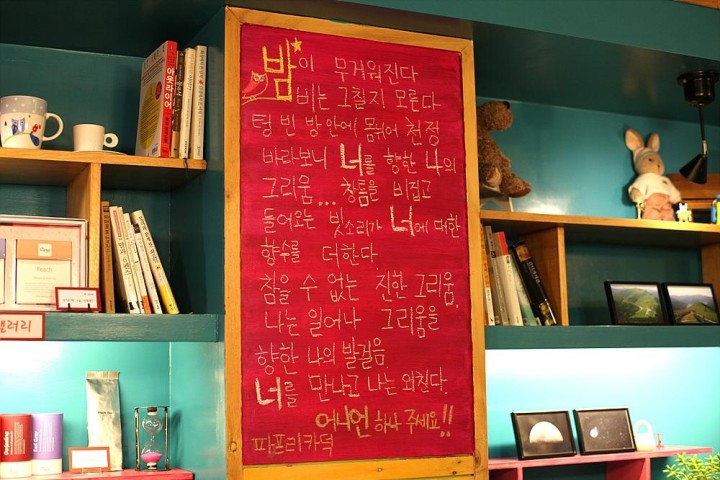 밤이 무거워진다
비는 그칠지 모른다
텅 빈 방안에 몸뉘어 천정
바라보니 너를 향한 나의
그리움... 창틈을 비집고
들어오는 빗소리가 너에 대한
향수를 더한다.
참을 수 없는 진한 그리움.
나는 일어나 그리움을
향한 나의 발걸음.
너를 만나고 나는 외친다.
어니언 하나 주세요!!
파프리카덕
아웃라이어
갤러리
Peach